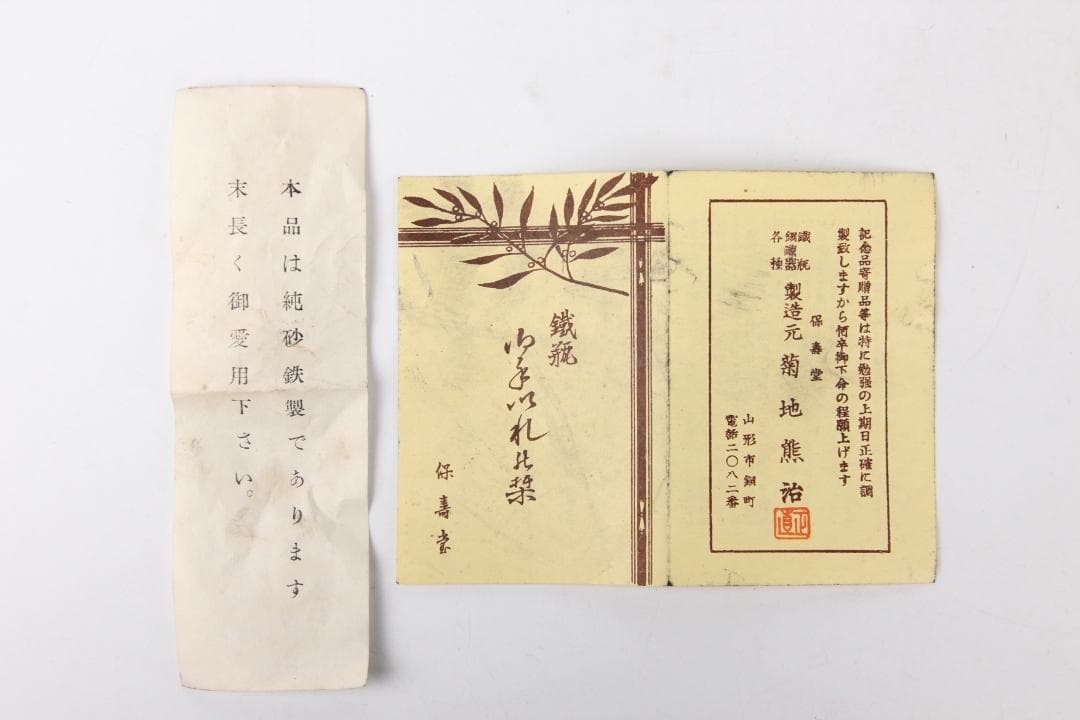 本品は純砂鉄製であります
末長く御愛用下さい。
記念品寄贈品等は特に勉强の上期日正確に調
製致しますから何卒御下命の程願上げます
鐵瓶
銅鐵器
各種
製造元
保壽堂
菊地熊治
正直
山形市銅町
電話二〇八二番
鐵瓶
御手入れの栞
保壽堂